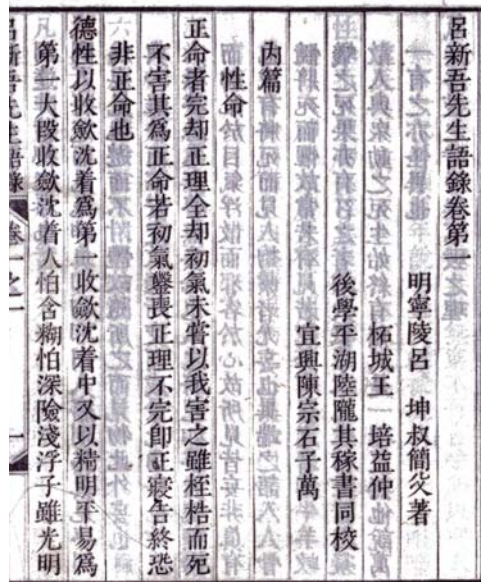 呂新吾先生語錄卷第一
明寧陵呂 坤叔簡父著
柘城王 培益仲
後學平湖陸隴其稼書同校
宜興陳宗石子萬
內篇
性命
正命者完却正理全却初氣未嘗以我害之雖桎梏而死
不害其爲正命若初氣鑿喪正理不完即正寢告終恐
非正命也
德性以收歛沈着爲第一收歛沈着中又以精明平易爲
第一大段收歛沈着人怕含糊怕深險淺浮子雖光明
呂新吾先生語錄 卷一之一 一